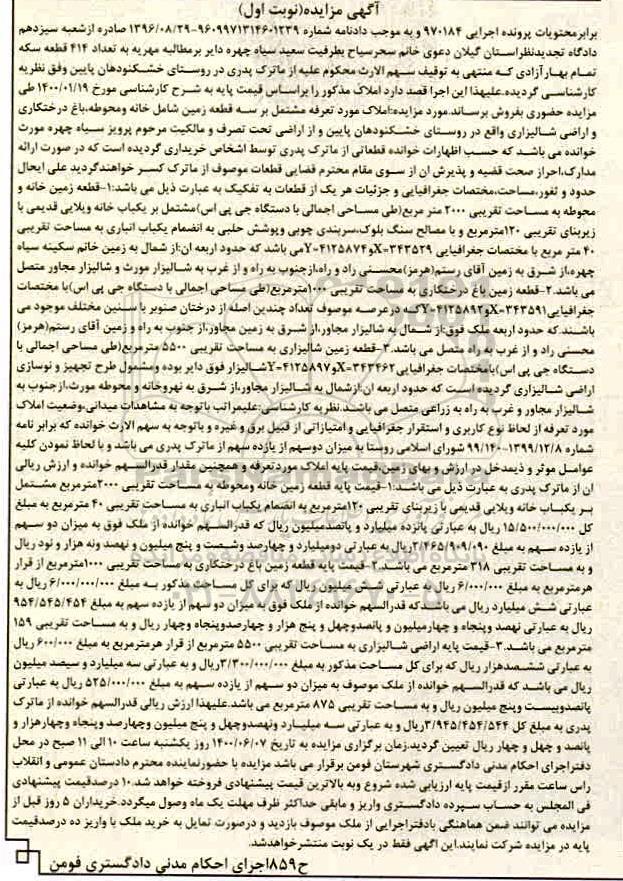 آگهی مزایده(نوبت اول)
برابرمحتویات پرونده اجرایی ۹۷۰۱۸۴ و به موجب دادنامه شماره ۹۶۰۹۹۷۱۳۱۴۶۰۱۲۳۹-۱۳۹۶/۰۸/۲۹ صادره ازشعبه سیزدهم
دادگاه تجدیدنظراستان گیلان دعوی خانم سحرسیاح بطرفیت سعید سیاه چهره دایر برمطالبه مهریه به تعداد ۴۱۴ قطعه سکه
تمام بهارآزادی که منتهی به توقیف سهم الارث محکوم علیه از ماترک پدری در روستای خشکنودهان پایین وفق نظریه
کارشناسی گردیده.علیهذا این اجرا قصد دارد املاک مذکور را براساس قیمت پایه به شرح کارشناسی مورخ ۱۴۰۰/۰۱/۱۹ طی
مزایده حضوری بفروش برساند.مورد مزایده:املاک مورد تعرفه مشتمل بر سه قطعه زمین شامل خانه ومحوطه،باغ درختکاری
و اراضی شالیزاری واقع در روستای خشکنودهان پایین و از اراضی تحت تصرف و مالکیت مرحوم پرویز سیاه چهره مورث
خوانده می باشد که حسب اظهارات خوانده قطعاتی از ماترک پدری توسط اشخاص خریداری گردیده است که در صورت ارائه
مدارک،احراز صحت قضیه و پذیرش ان از سوی مقام محترم قضایی قطعات موصوف از ماترک کسر خواهندگردید علی ایحال
حدود و ثغور،مساحت،مختصات جغرافیایی و جزئیات هر یک از قطعات به تفکیک به عبارت ذیل می باشد:۱-قطعه زمین خانه و
محوطه به مساحت تقریبی ۲۰۰۰ متر مربع(طی مساحی اجمالی با دستگاه جی پی اس)مشتمل بر یکباب خانه ویلایی قدیمی با
زیربنای تقریبی ۱۲۰مترمربع و با مصالح سنگ بلوک،سربندی چوبی وپوشش حلبی به انضمام یکباب انباری به مساحت تقریبی
۴۰ متر مربع با مختصات جغرافیایی X=۳۴۳۵۲۹و Y=۴۱۲۵۸۷۴می باشد که حدود اربعه ان:از شمال به زمین خانم سکینه سیاه
چهره،از شرق به زمین آقای رستم(هرمز)محسنی راد و راه،ازجنوب به راه و از غرب به شالیزار مورث و شالیزار مجاور متصل
می باشد.۲-قطعه زمین باغ درختکاری به مساحت تقریبی ۱۰۰۰مترمربع(طی مساحی اجمالی با دستگاه جی پی اس)با مختصات
جغرافیاییX=۳۴۳۵۹۱وY=۴۱۲۵۸۹۲که درعرصه موصوف تعداد چندین اصله از درختان صنوبر با سنین مختلف موجود می
باشند.که حدود اربعه ملک فوق:از شمال به شالیزار مجاور،از شرق به زمین مجاور،از جنوب به راه و زمین آقای رستم(هرمز)
محسنی راد و از غرب به راه متصل می باشد.۳-قطعه زمین شالیزاری به مساحت تقریبی ۵۵۰۰ مترمربع(طی مساحی اجمالی با
دستگاه جی پی اس)بامختصات جغرافیاییX=۳۴۳۴۶۲وY=۴۱۲۵۸۹۷شالیزار فوق دایر بوده ومشمول طرح تجهیز و نوسازی
اراضی شالیزاری گردیده است که حدود اربعه ان:ازشمال به شالیزار مجاور،از شرق به نهروخانه و محوطه مورث،ازجنوب به
شالیزار مجاور و غرب به راه به زراعی متصل می باشند.نظریه کارشناسی:علیمراتب باتوجه به مشاهدات میدانی،وضعیت املاک
مورد تعرفه از لحاظ نوع کاربری و استقرار جغرافیایی و امتیازاتی از قبیل برق و غیره و باتوجه به سهم الارث خوانده که برابر نامه
شماره ۹۹/۱۴۰-۱۳۹۹/۱۲/۸ شورای اسلامی روستا به میزان دوسهم از یازده سهم از ماترک پدری می باشد و با لحاظ نمودن کلیه
عوامل موثر و ذیمدخل در ارزش و بهای زمین،قیمت پایه املاک موردتعرفه و همچنین مقدار قدرالسهم خوانده و ارزش ریالی
ان از ماترک پدری به عبارت ذیل می باشد:۱-قیمت پایه قطعه زمین خانه ومحوطه به مساحت تقریبی ۲۰۰۰مترمربع مشتمل
بر یکباب خانه ویلایی قدیمی با زیربنای تقریبی ۱۲۰مترمربع به انضمام یکباب انباری به مساحت تقریبی ۴۰ مترمربع به مبلغ
کل ۱۵/۵۰۰/۰۰۰/۰۰۰ ریال به عبارتی پانزده میلیارد و پانصدمیلیون ریال که قدرالسهم خوانده از ملک فوق به میزان دو سهم
از یازده سهم به مبلغ ۲/۴۶۵/۹۰۹/۰۹۰ریال به عبارتی دومیلیارد و چهارصد وشصت و پنج میلیون و نهصد ونه هزار و نود ریال
و به مساحت تقریبی ۳۱۸ مترمربع می باشد.۲-قیمت پایه قطعه زمین باغ درختکاری به مساحت تقریبی ۱۰۰۰مترمربع از قرار
هرمترمربع به مبلغ ۶/۰۰۰/۰۰۰ ریال به عبارتی شش میلیون ریال که برای کل مساحت مذکور به مبلغ ۶/۰۰۰/۰۰۰/۰۰۰ ریال به
عبارتی شش میلیارد ریال می باشدکه قدرالسهم خوانده از ملک فوق به میزان دو سهم از یازده سهم به مبلغ ۹۵۴/۵۴۵/۴۵۴
ریال به عبارتی نهصد وپنجاه و چهارمیلیون و پانصدوچهل و پنج هزار و چهارصدوپنجاه وچهار ریال و به مساحت تقریبی ۱۵۹
مترمربع می باشد.۳-قیمت پایه اراضی شالیزاری به مساحت تقریبی ۵۵۰۰ مترمربع از قرار هرمترمربع به مبلغ ۶۰۰/۰۰۰ ریال
به عبارتی ششصدهزار ریال که برای کل مساحت مذکور به مبلغ ۳/۳۰۰/۰۰۰/۰۰۰ریال و به عبارتی سه میلیارد و سیصد میلیون
ریال می باشد که قدرالسهم خوانده از ملک موصوف به میزان دو سهم از یازده سهم به مبلغ ۵۲۵/۰۰۰/۰۰۰ ریال به عبارتی
پانصدوبیست وپنج میلیون ریال و به مساحت تقریبی ۸۷۵ مترمربع می باشد.علیهذا ارزش ریالی قدرالسهم خوانده از ماترک
پدری به مبلغ کل ۳/۹۴۵/۴۵۴/۵۴۴ریال و به عبارتی سه میلیارد ونهصدوچهل و پنج میلیون وچهارصد وپنجاه وچهارهزار و
پانصد و چهل و چهار ریال تعیین گردید.زمان برگزاری مزایده به تاریخ ۱۴۰۰/۰۶/۰۷ روز یکشنبه ساعت ۱۰ الی ۱۱ صبح در محل
دفتراجرای احکام مدنی دادگستری شهرستان فومن برقرار می باشد مزایده با حضورنماینده محترم دادستان عمومی و انقلاب
راس ساعت مقرر ازقیمت پایه ارزیابی شده شروع وبه بالاترین قیمت پیشنهادی فروخته خواهد شد.۱۰ درصدقیمت پیشنهادی
فی المجلس به حساب سپرده دادگستری واریز و مابقی حداکثر ظرف مهلت یک ماه وصول میگردد.خریداران ۵ روز قبل از
مزایده می توانند ضمن هماهنگی بادفتراجرایی از ملک موصوف بازدید و درصورت تمایل به خرید ملک با واریز ده درصدقیمت
پایه در مزایده شرکت نمایند.این اگهی فقط در یک نوبت منتشرخواهدشد.
ح۸۵۹اجرای احکام مدنی دادگستری فومن